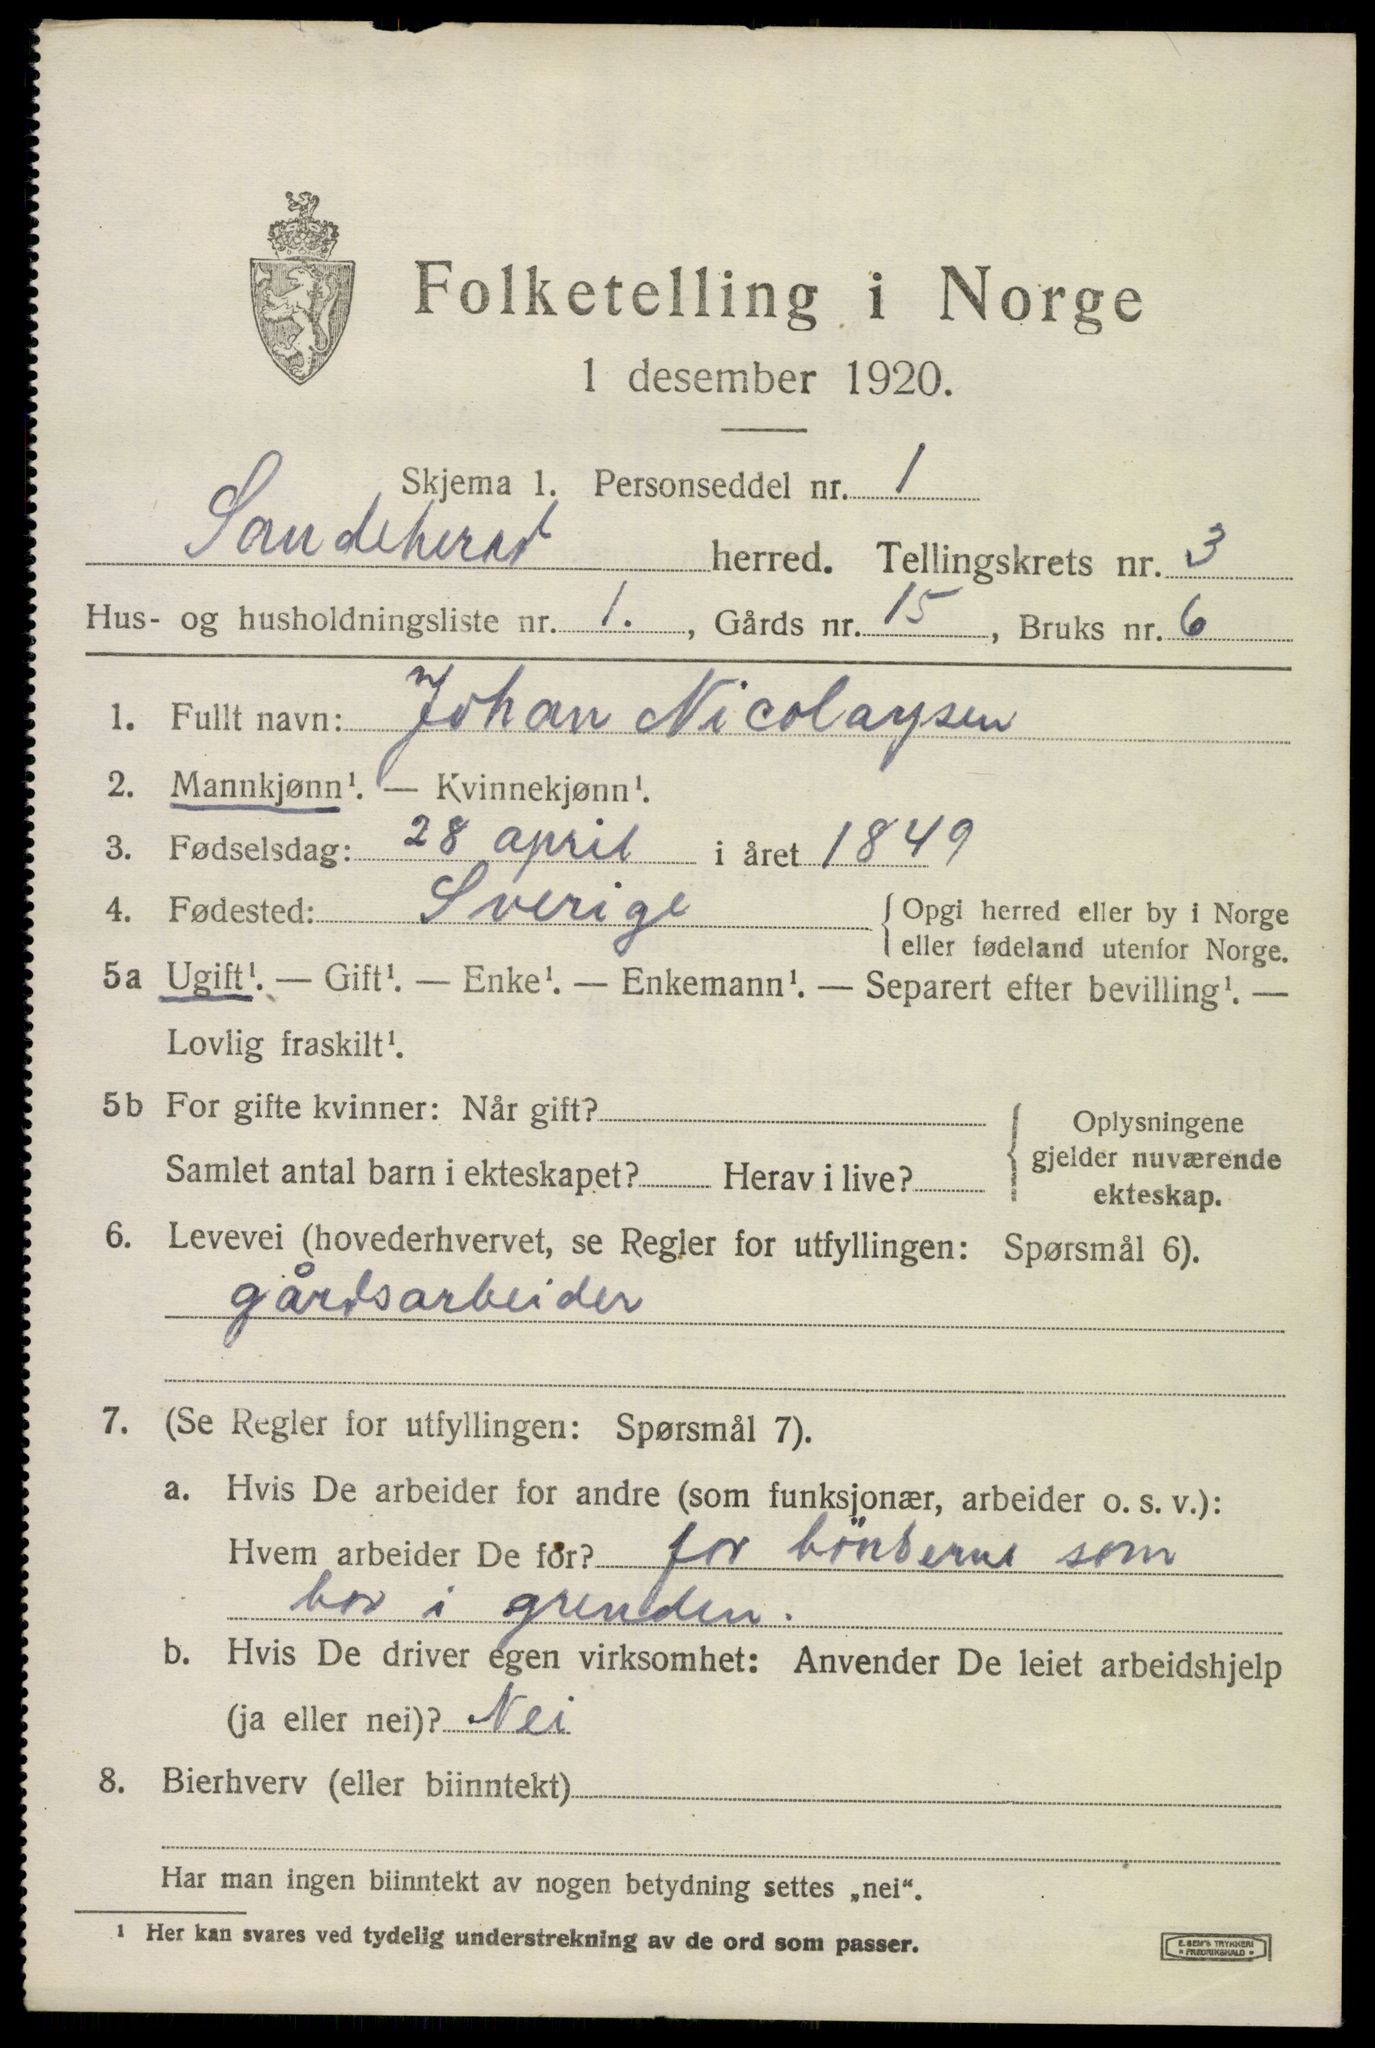 Folketelling i Norge
1 desember 1920.
Skjema 1. Personseddel nr. 1
Sandeherad herred. Tellingskrets nr. 3
Hus- og husholdningsliste nr. 1., Gårds nr. 15, Bruks nr. 6
1. Fullt navn: Johan Nicolaysen
2. Mannkjønn¹. — Kvinnekjønn¹.
3. Fødselsdag: 28 april i året 1849
4. Fødested: Sverige { Opgi herred eller by i Norge
eller fødeland utenfor Norge.
5a Ugift¹. — Gift¹. — Enke¹. — Enkemann¹. — Separert efter bevilling¹. —
Lovlig fraskilt¹.
5b For gifte kvinner: Når gift?
Samlet antal barn i ekteskapet? Herav i live?
{ Oplysningene
gjelder nuværende
ekteskap.
6. Levevei (hovederhvervet, se Regler for utfyllingen: Spørsmål 6).
gårdsarbeider
7. (Se Regler for utfyllingen: Spørsmål 7).
a. Hvis De arbeider for andre (som funksjonær, arbeider o. s. v.):
Hvem arbeider De for? for bönderne som
bor i grenden.
b. Hvis De driver egen virksomhet: Anvender De leiet arbeidshjelp
(ja eller nei)? Nei
8. Bierhverv (eller biinntekt)
Har man ingen biinntekt av nogen betydning settes „nei“.
¹ Her kan svares ved tydelig understrekning av de ord som passer.
E. SEM'S TRYKKERI
• FREDRIKSHALD •